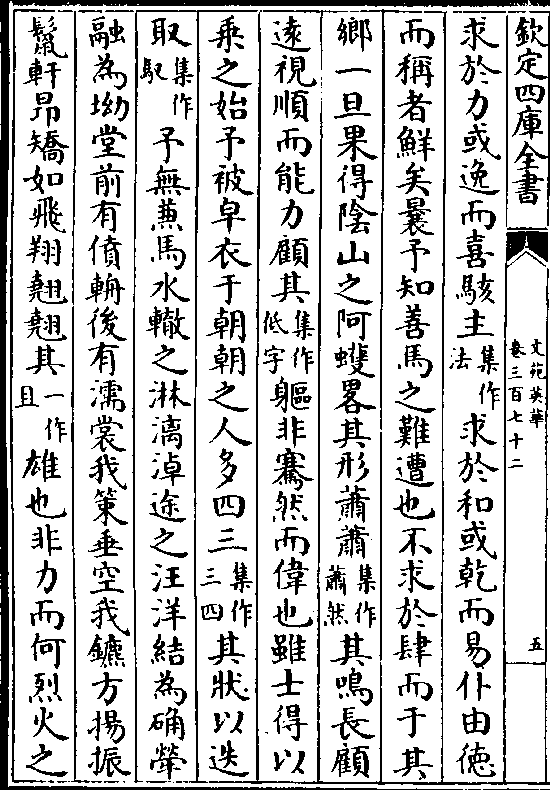 欽定四庫全書
文苑英華
卷三百七十二
五
求於力或逸而喜駭主集作法求於和或乾而易仆由德
而稱者鮮矣曩予知善馬之難遭也不求於肆而于其
鄉一旦果得陰山之阿蠼畧其形蕭蕭集作蕭然其鳴長顧
遠視順而能力顧其集作低字軀非騫然而偉也雖士得以
乘之始予被皁衣于朝朝之人多四三集作三四其狀以迭
取集作馭予無蒹馬水轍之淋漓淖途之汪洋結為确犖
融為坳堂前有僨輈後有濡裳我策垂空我鑣方揚振
鬛軒昂矯如飛翔翹翹其一作且雄也非力而何烈火之